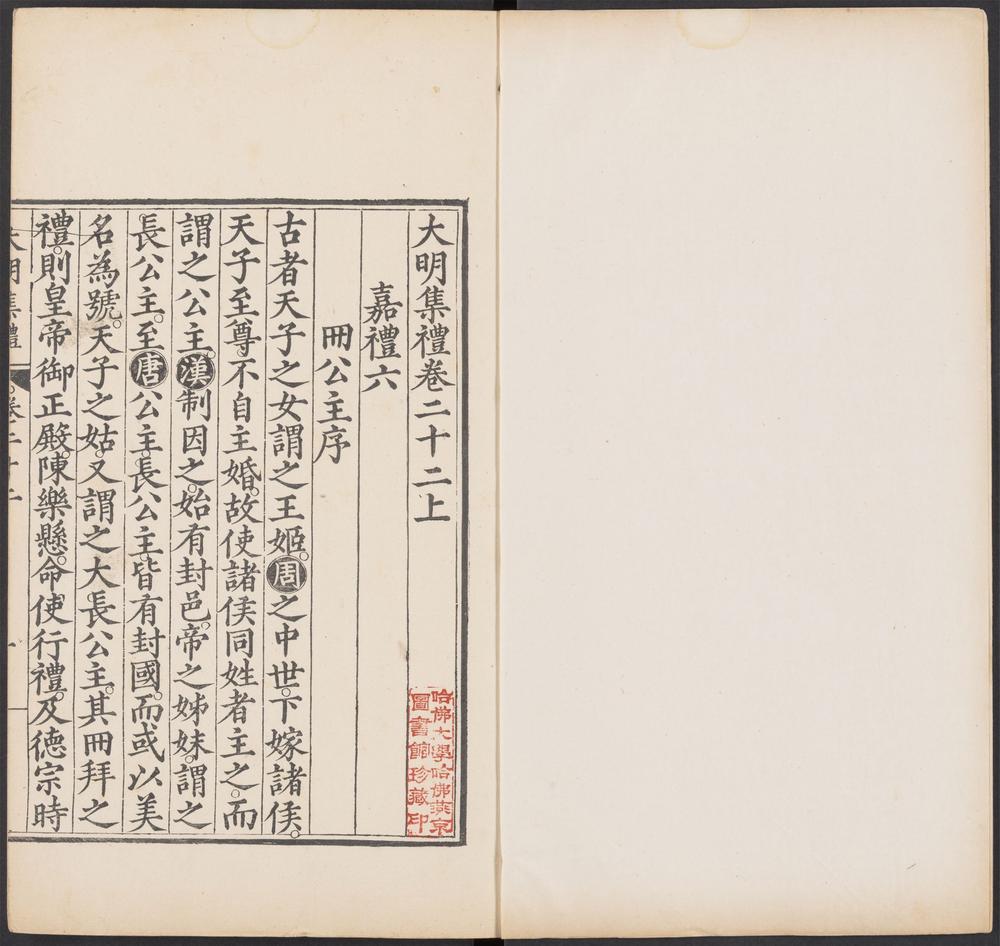 大明集禮卷二十二上
嘉禮六
冊公主序
古者天子之女謂之王姬。周之中世。下嫁諸侯。
天子至尊。不自主婚。故使諸侯同姓者主之。而
謂之公主。漢制因之。始有封邑。帝之姊妹。謂之
長公主。至唐公主。長公主。皆有封國。而或以美
名為號。天子之姑。又謂之大長公主。其冊拜之
禮。則皇帝御正殿。陳樂懸。命使行禮。及德宗時
大明集禮 卷二十二 一
哈佛大學哈佛燕京
圖書館珍藏印